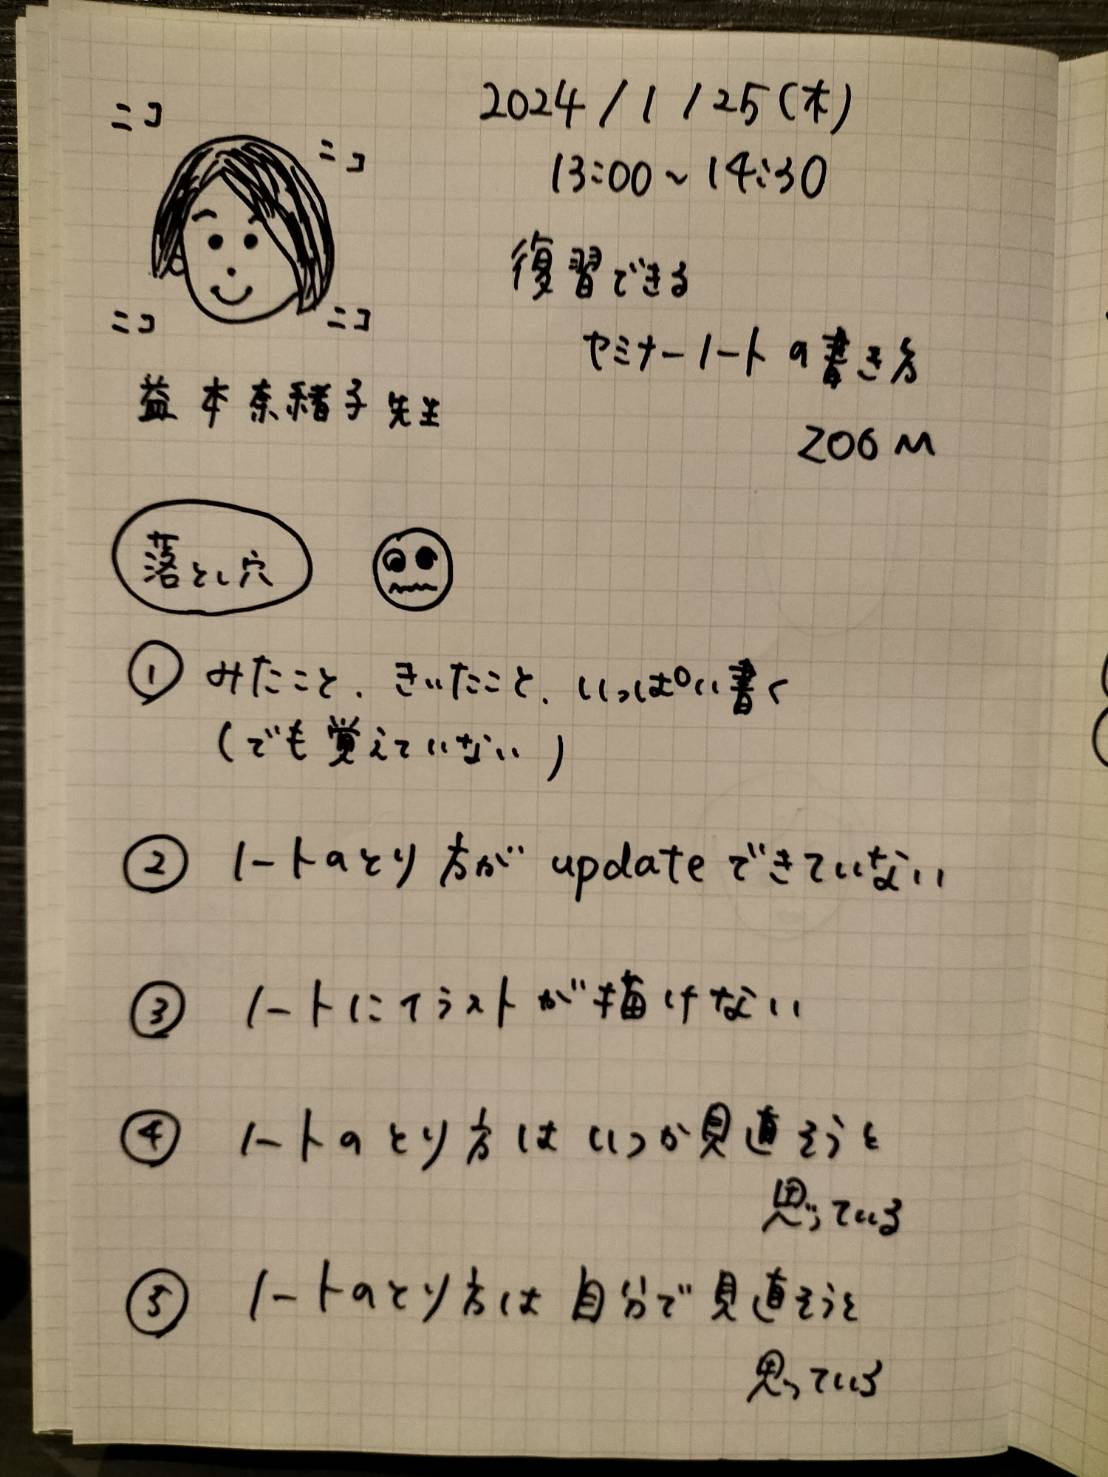 2024/1/25(木)
13:00~14:30
復習できる
セミナーノートの書き方
ZOOM
ニコ
ニコ
ニコ
ニコ
益本奈緒子先生
落とし穴
① みたこと、きいたこと、いっぱい書く
(でも覚えていない)
② ノートのとり方がupdateできていない
③ ノートにイラストが描けない
④ ノートのとり方はいつか見直そうと
思っている
⑤ ノートのとり方は自分で見直そうと
思っている